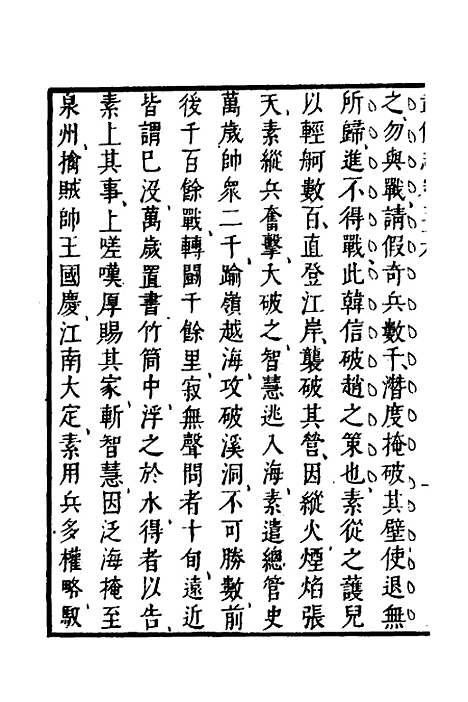 之勿與戰請假奇兵數千潛度掩破其壁使退無
所歸進不得戰此韓信破趙之策也素從之護兒
以輕舸數百直登江岸襲破其營因縱火煙焰張
天素縱兵奮擊大破之智慧逃入海素遣總管史
萬歲帥衆二千踰嶺越海攻破溪洞不可勝數前
後千百餘戰轉鬬千餘里寂無聲問者十旬遠近
皆謂已沒萬歲置書竹筒中浮之於水得者以告
素上其事上嗟嘆厚賜其家斬智慧因泛海掩至
泉州擒賊帥王國慶江南大定素用兵多權略馭